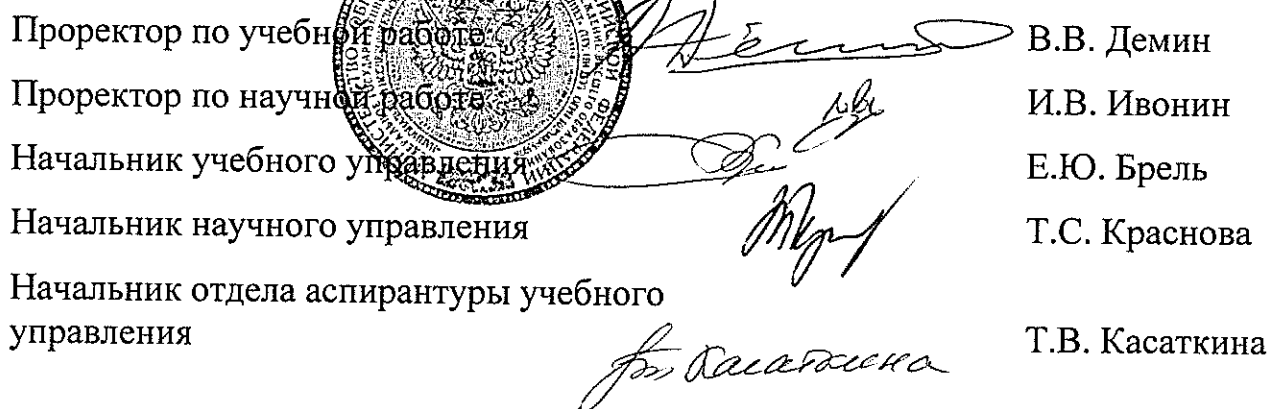 Проректор по учебной работе В.В. Демин
Проректор по научной работе И.В. Ивонин
Начальник учебного управления Е.Ю. Брель
Начальник научного управления Т.С. Краснова
Начальник отдела аспирантуры учебного
управления Т.В. Касаткина
Касаткина